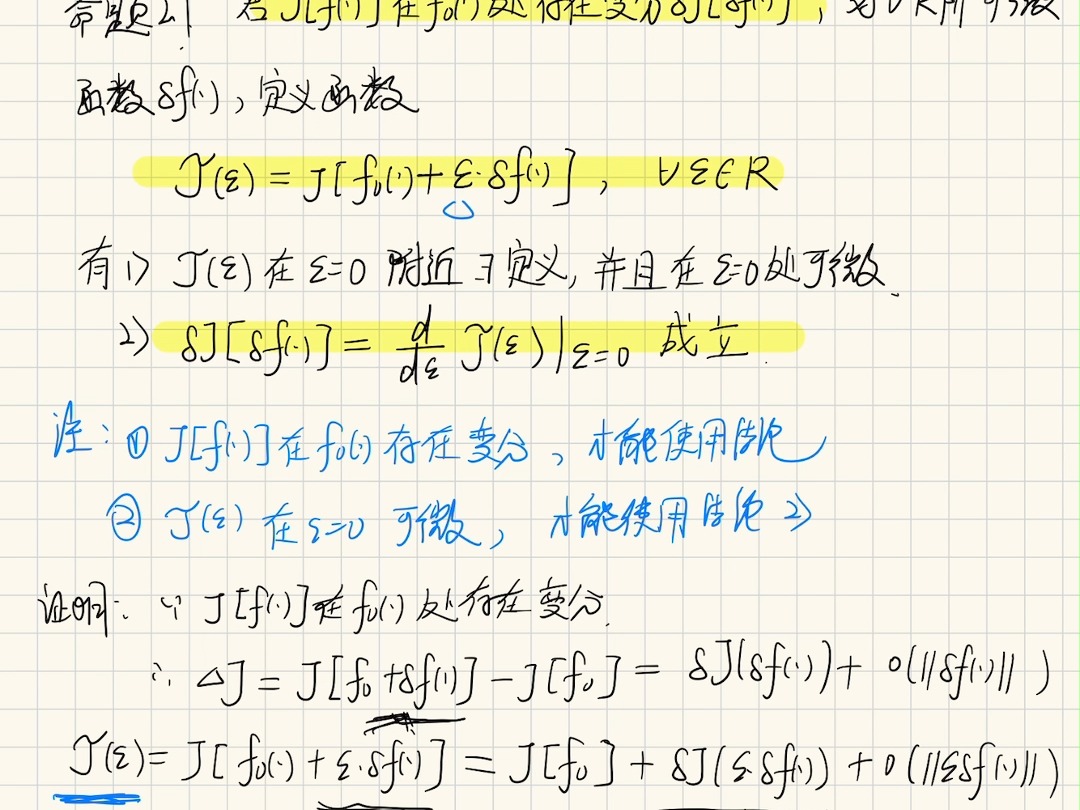 命题2.1 若J[f(·)]在f₀(·)处存在变分δJ[δf(·)], 对∀R所可微
函数δf(·), 定义函数
J(ε) = J[f₀(·)+ε·δf(·)], ∀ε∈R
有1) J(ε)在ε=0附近∃定义, 并且在ε=0处可微.
2) δJ[δf(·)] = d/dε J(ε)|ε=0 成立.
注: ① J[f(·)]在f₀(·)存在变分, 才能使用结论
② J(ε)在ε=0可微, 才能使用结论2)
证明: ∵ J[f(·)]在f₀(·)处存在变分.
∴ ΔJ = J[f₀+δf(·)] - J[f₀] = δJ(δf(·)) + o(||δf(·)||)
J(ε) = J[f₀(·)+ε·δf(·)] = J[f₀] + δJ(ε·δf(·)) + o(||εδf(·)||)